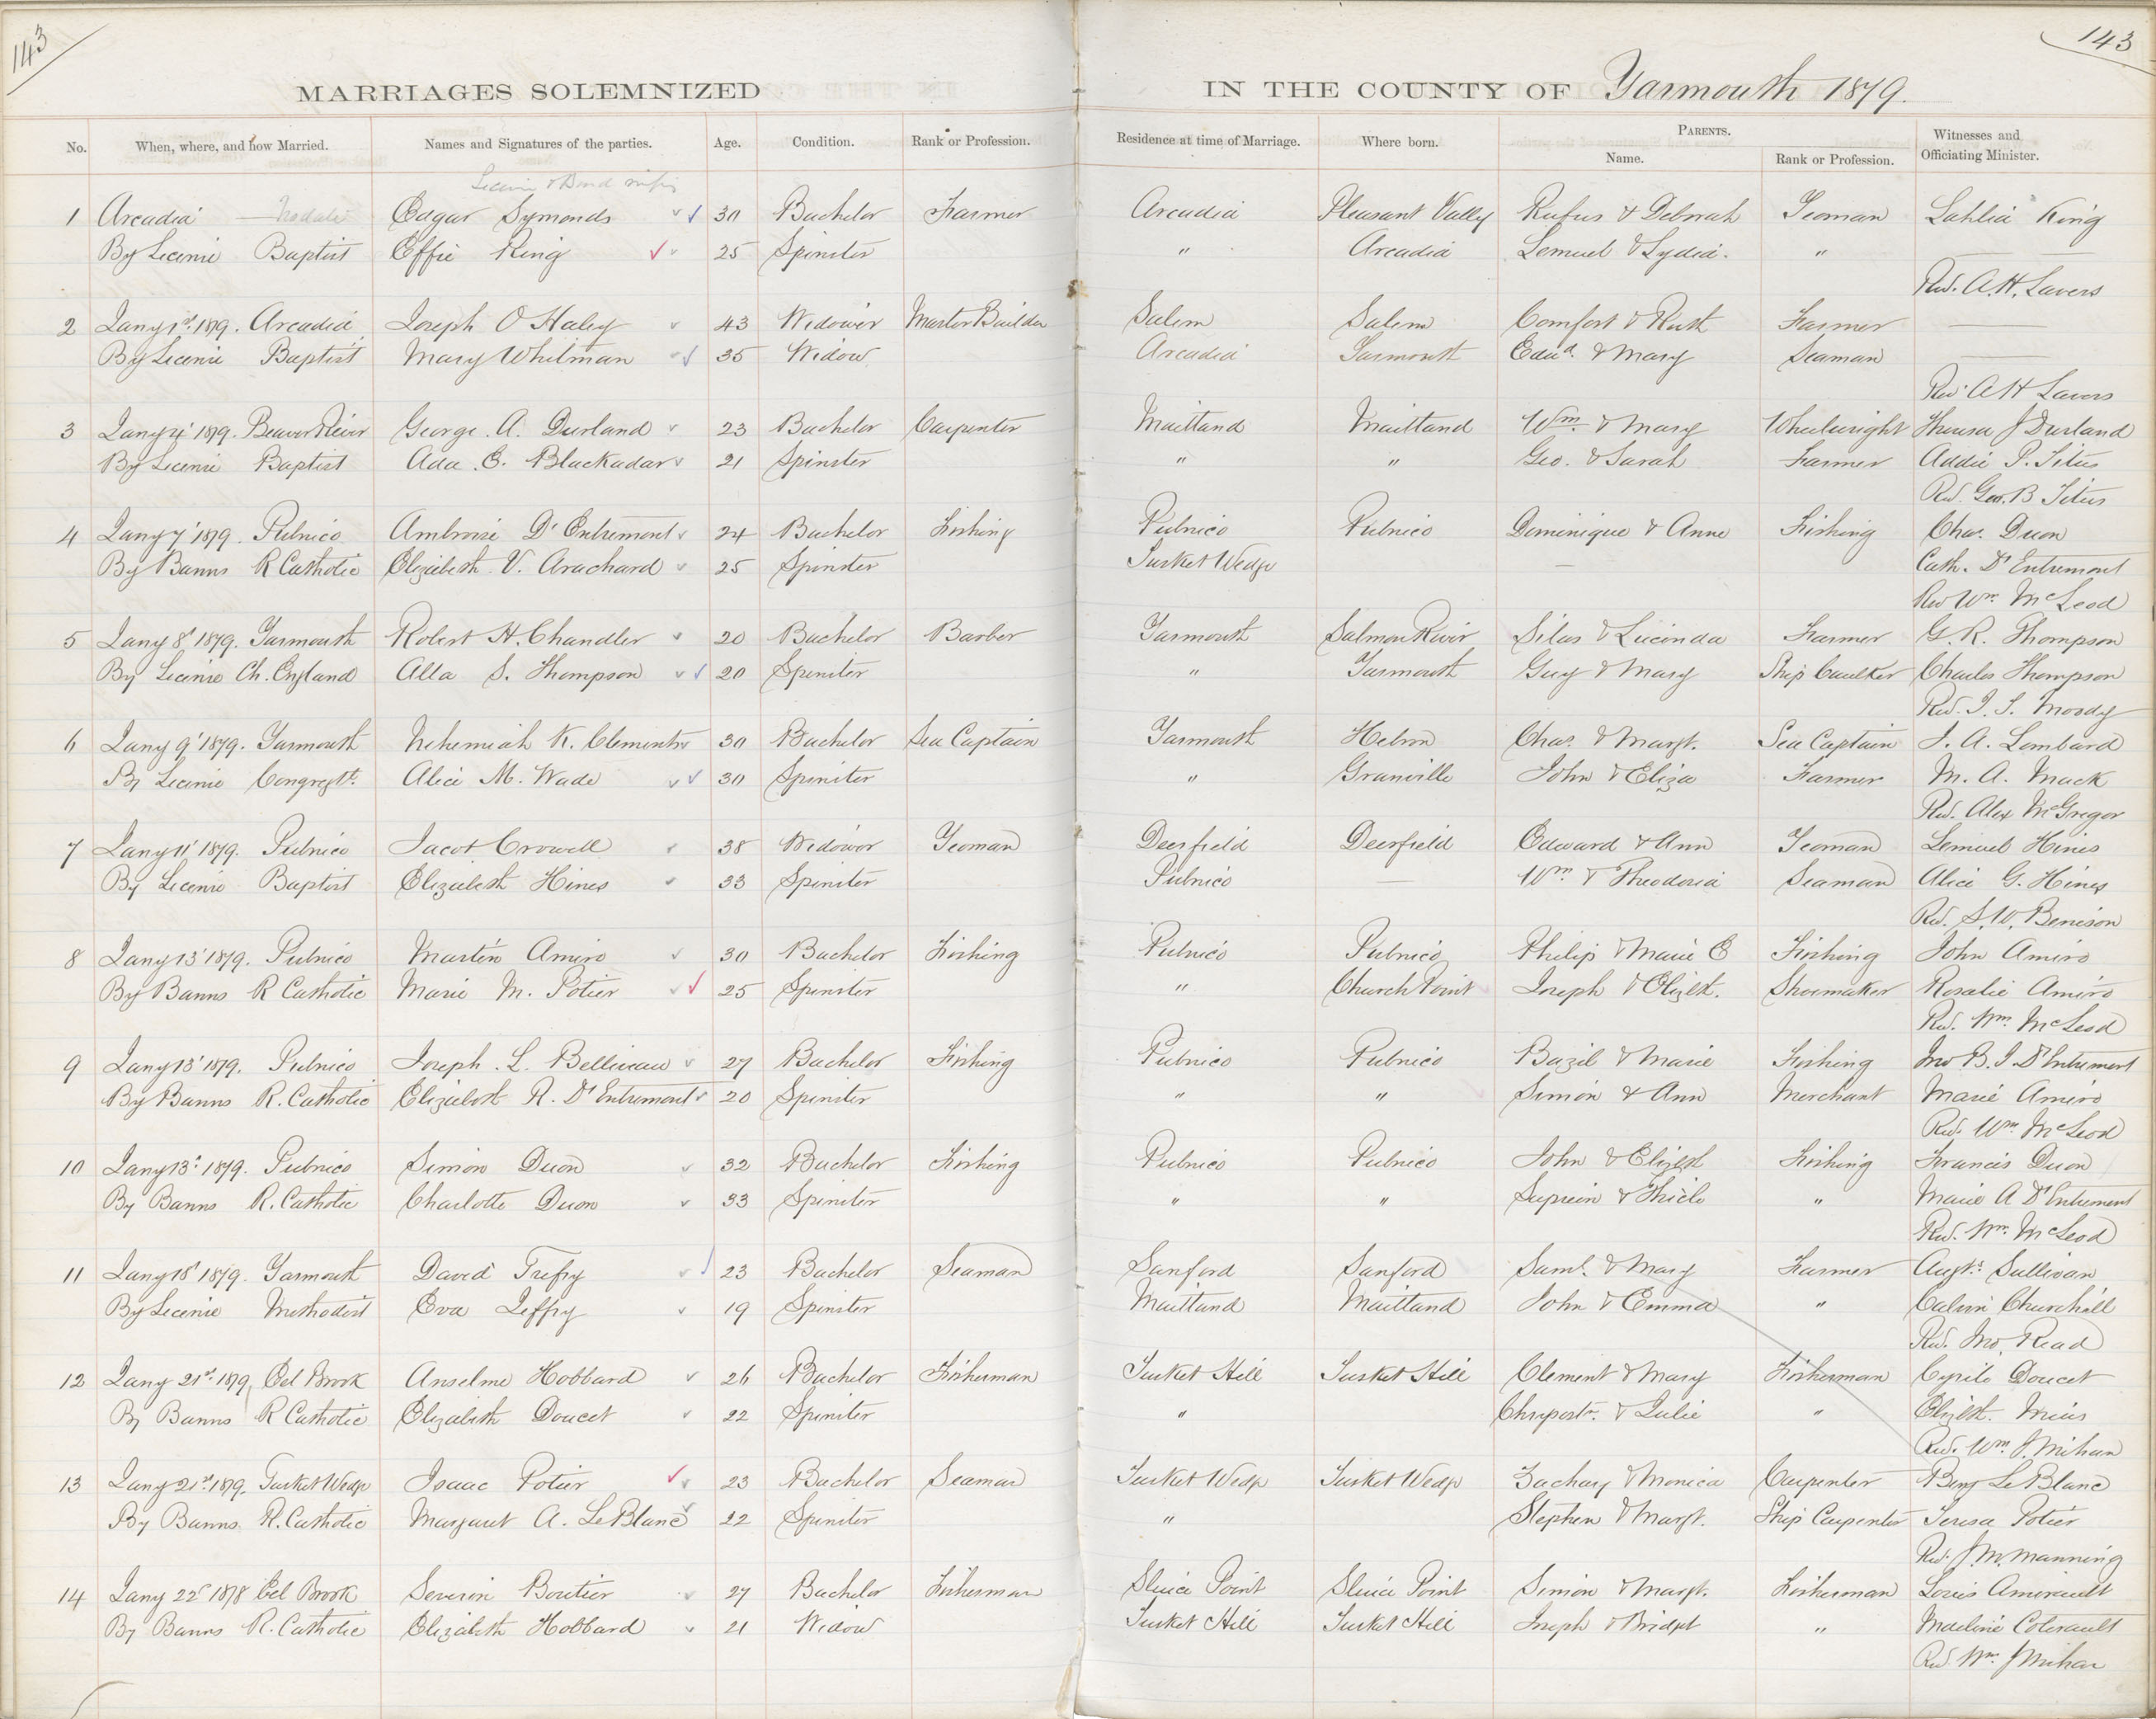 143
143
MARRIAGES SOLEMNIZED IN THE COUNTY OF Yarmouth 1879.
No. When, where, and how Married. Names and Signatures of the parties. Age. Condition. Rank or Profession. Residence at time of Marriage. Where born. PARENTS. Name. Rank or Profession. Witnesses and Officiating Minister.
License & Bond
1 Arcadia — No date Edgar Symonds 30 Bachelor Farmer Arcadia Pleasant Vally Rufus & Deborah Yeoman King
By License Baptist Effie King 25 Spinster " Arcadia Lemuel & Lydia. "
Rev. A. H. Lavers
2 Jany 1st 1879. Arcadia Joseph O Haley 43 Widower Master Builder Salem Salem Comfort & Ruth Farmer
By License Baptist Mary Whitman 35 Widow Arcadia Yarmouth Edwd. & Mary Seaman
Rev A H Lavers
3 Jany 4' 1879. Beaver River George. A. Durland 23 Bachelor Carpenter Maitland Maitland Wm. & Mary Wheelwright Theresa J Durland
By License Baptist Ada. E. Blackadar 21 Spinster " " Geo. & Sarah Farmer Addie P. Titus
Rev. Geo. B Titus
4 Jany 7' 1879. Pubnico Ambroise D'Entremont 24 Bachelor Fishing Pubnico Pubnico Dominique & Anne Fishing Chas. Duon
By Banns R Catholic Elizabeth V. Arachard 25 Spinster Tusket Wedge — Cath. D'Entremont
Rev Wm. McLeod
5 Jany 8' 1879. Yarmouth Robert H. Chandler 20 Bachelor Barber Yarmouth Salmon River Silas & Lucinda Farmer G. R. Thompson
By License Ch. England Alla S. Thompson 20 Spinster " Yarmouth Guy & Mary Ship Caulker Charles Thompson
Rev. J. T. Moody
6 Jany 9' 1879. Yarmouth Nehemiah K. Clements 30 Bachelor Sea Captain Yarmouth Hebron Chas. & Margt. Sea Captain J. A. Lombard
By License Congregtl. Alice M. Wade 30 Spinster " Granville John & Eliza Farmer M. A. Mack
Rev. Alex McGregor
7 Jany 11' 1879. Pubnico Jacob Crowell 38 Widower Yeoman Deerfield Deerfield Edward & Ann Yeoman Lemuel Hines
By License Baptist Elizabeth Hines 33 Spinster Pubnico — Wm. & Theodosia Seaman Alice G. Hines
Rev. S. W. Benison
8 Jany 13' 1879. Pubnico Martin Amiro 30 Bachelor Fishing Pubnico Pubnico Philip & Marie E Fishing John Amiro
By Banns R Catholic Marie M. Potier 25 Spinster " Church Point Joseph & Elizbt. Shoemaker Rosalie Amiro
Rev. Wm. McLeod
9 Jany 13' 1879. Pubnico Joseph. L. Belliveau 27 Bachelor Fishing Pubnico Pubnico Bazil & Marie Fishing Jno. B. I D'Entremont
By Banns R. Catholic Elizabeth R. D'Entremont 20 Spinster " " Simon & Ann Merchant Marie Amiro
Rev. Wm. McLeod
10 Jany 13' 1879. Pubnico Simon Duon 32 Bachelor Fishing Pubnico Pubnico John & Elizbt Fishing Francis Duon
By Banns R. Catholic Charlotte Duon 33 Spinster " " & "  Marie A D'Entremont
Rev. Wm. McLeod
11 Jany 18' 1879. Yarmouth David Trefry 23 Bachelor Seaman Sanford Sanford Saml. & Mary Farmer Augts. Sullivan
By License Methodist Eva Jeffry 19 Spinster Maitland Maitland John & Emma " Calvin Churchill
Rev. Jno. Read
12 Jany 21st. 1879, Eel Brook Anselme Hobbard 26 Bachelor Fisherman Tusket Hill Tusket Hill Clement & Mary Fisherman Cyrile Doucet
By Banns R Catholic Elizabeth Doucet 22 Spinster " & Julie " Elizbt. Muis
Rev. Wm. J. Mihan
13 Jany 21st. 1879. Tusket Wedge Isaac Potier 23 Bachelor Seaman Tusket Wedge Tusket Wedge Zachary & Monica Carpenter Benj LeBlanc
By Banns. R. Catholic Margaret A. LeBlanc 22 Spinster " Stephen & Margt. Ship Carpenter Teresa Potier
Rev. J. M. Manning
14 Jany 22d 1878 Eel Brook Severin Boutier 27 Bachelor Fisherman Sluice Point Sluice Point Simon & Margt. Fisherman Louis Amirault
By Banns R. Catholic Elizabeth Hobbard 21 Widow Tusket Hill Tusket Hill Joseph & Bridget " Madeline
Rev. Wm. J Mihan